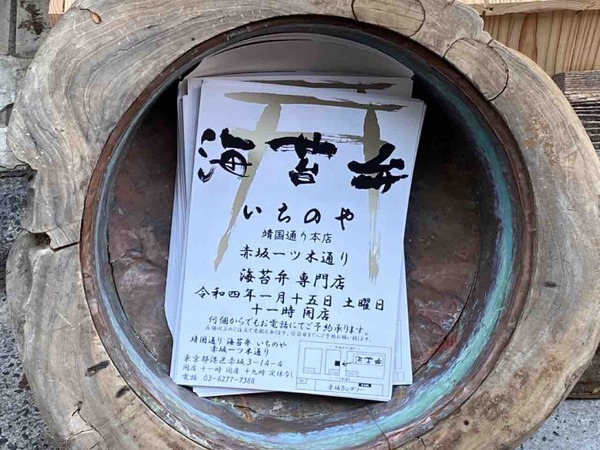 海苔弁
いちのや
靖国通り本店
赤坂一ツ木通り
海苔弁専門店
令和四年一月十五日 土曜日
十一時 開店
何個からでもお電話にてご予約承ります。
靖国通り 海苔弁 いちのや
赤坂一ツ木通り
東京都港区赤坂3-14-4
開店 十一時 閉店 十九時 定休なし
電話 03-6277-7388
海苔弁
赤坂Bizタワー